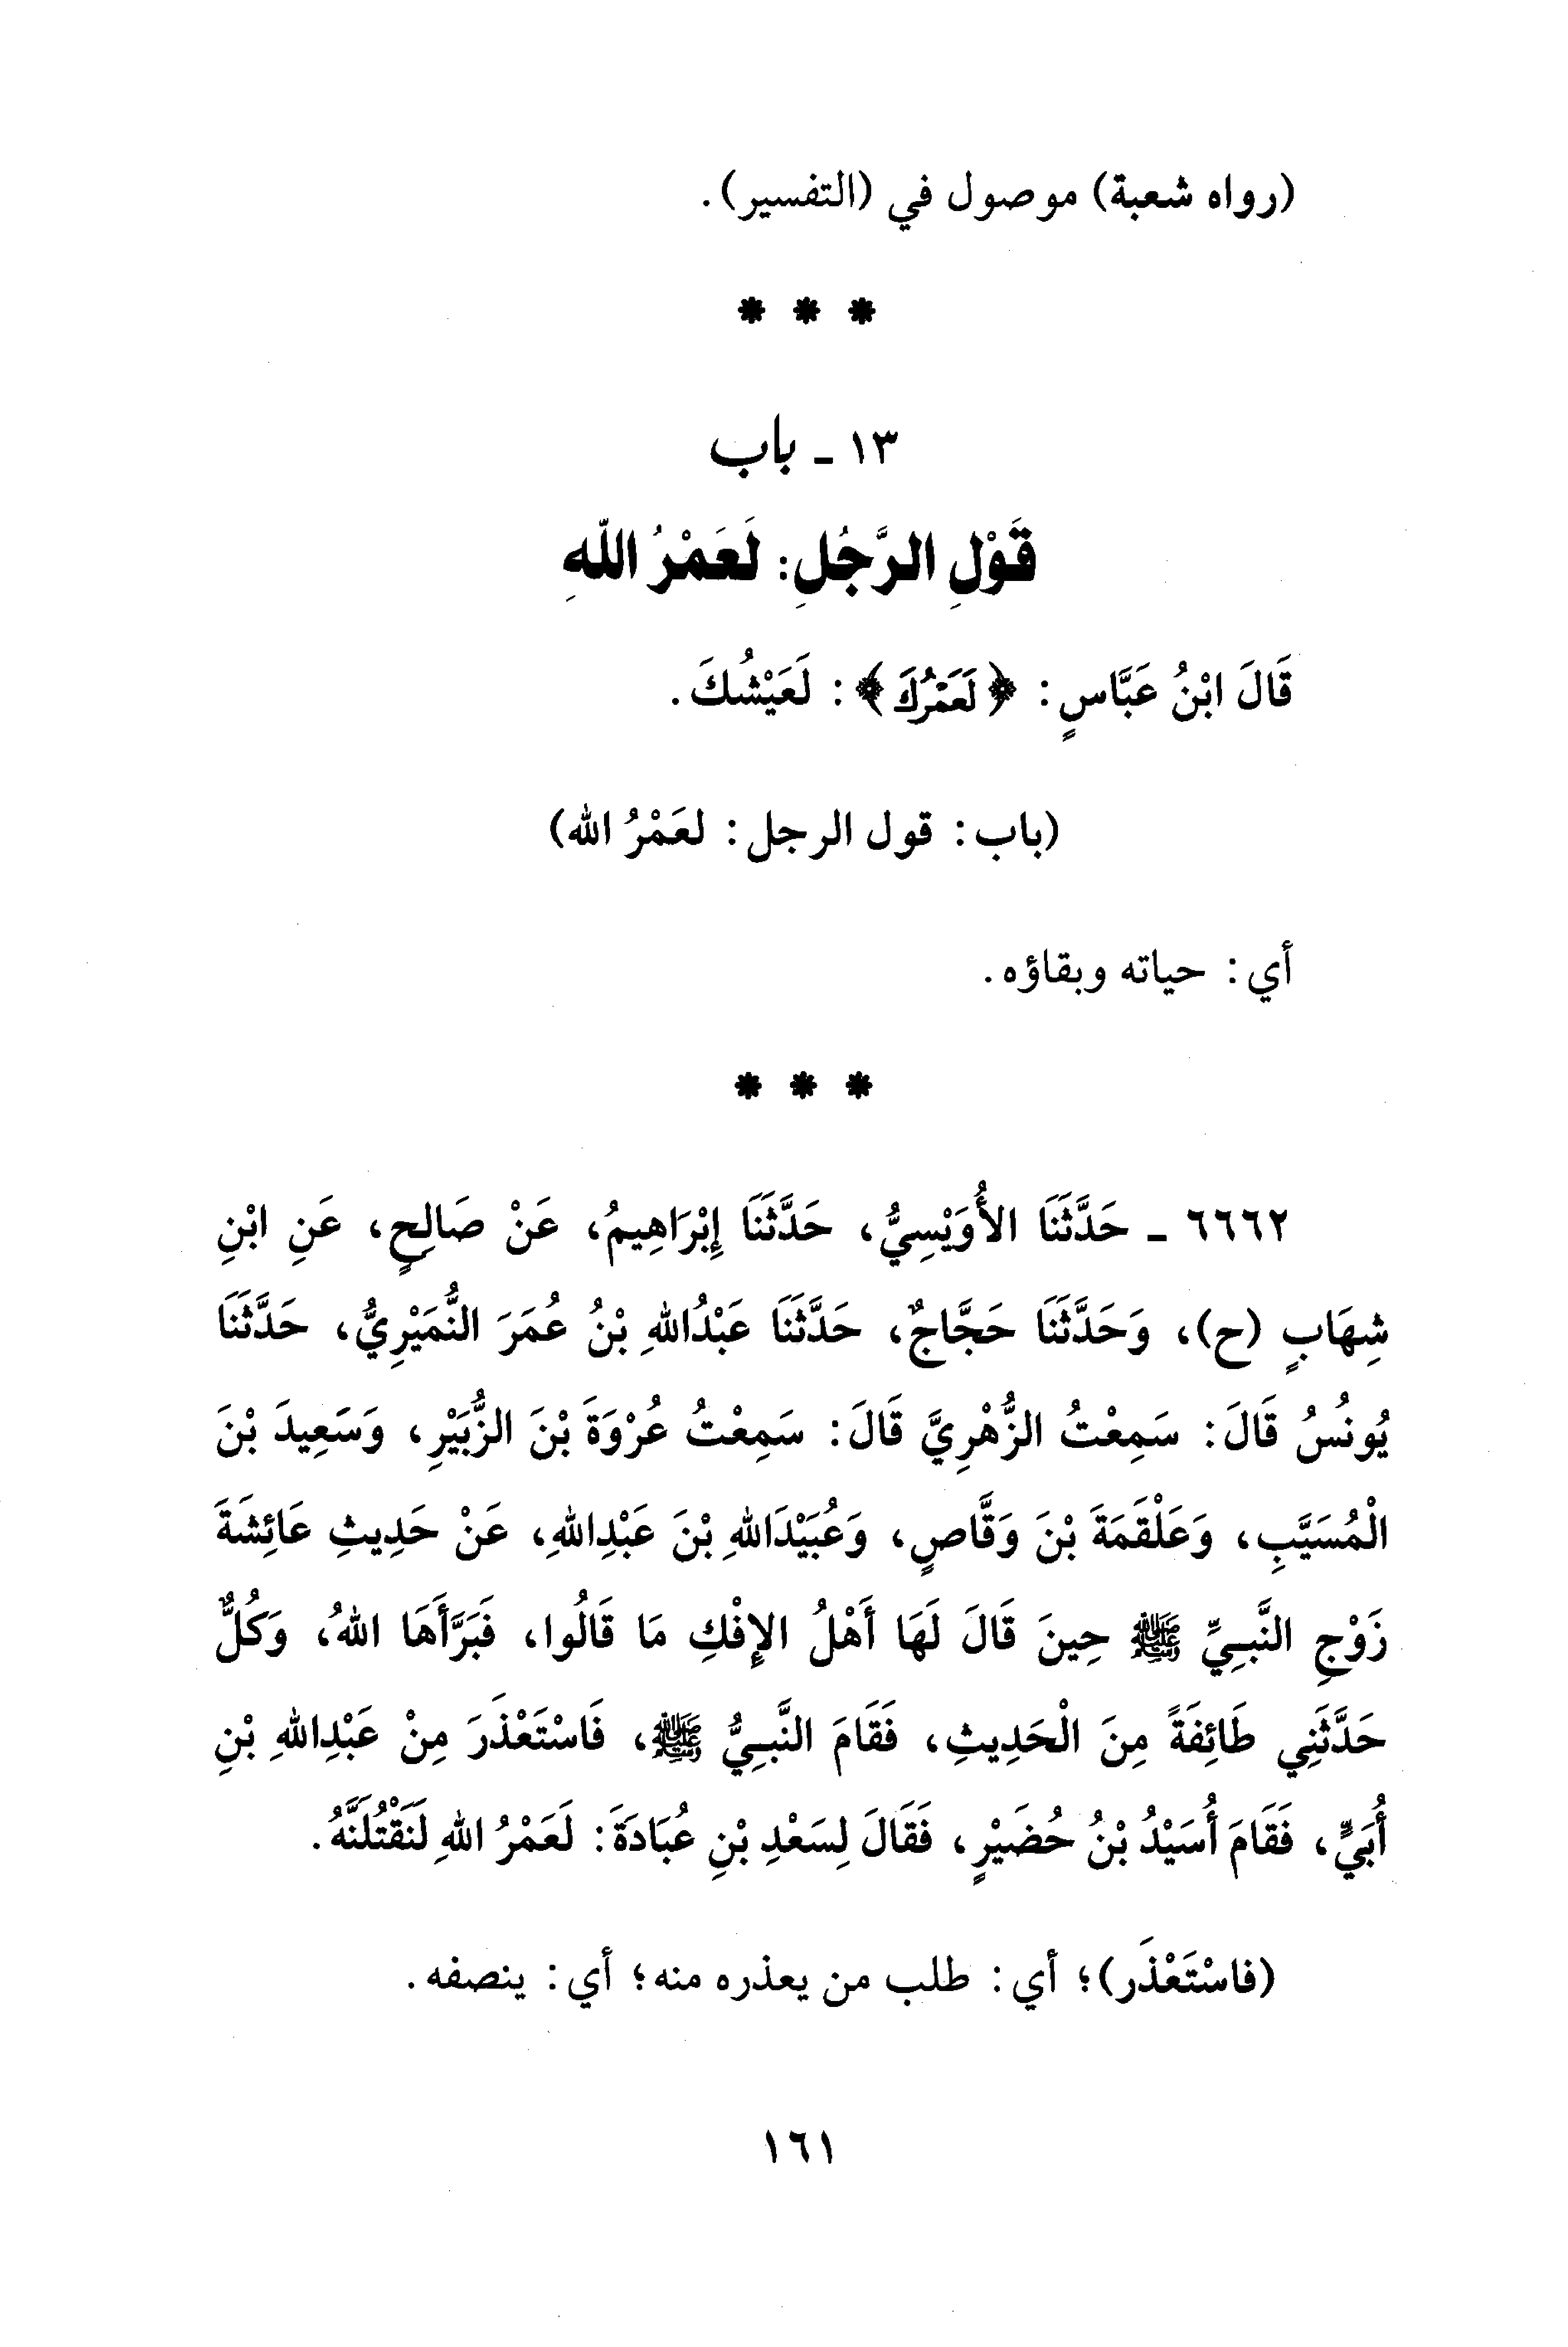 (رواه شعبة) موصول في (التفسير).
* * *
١٣ - باب
قَوْلِ الرَّجُلِ: لَعَمْرُ اللهِ
قَالَ ابْنُ عَبَّاسٍ: ﴿لَعَمْرُكَ﴾: لَعَيْشُكَ.
(باب: قول الرجل: لعَمْرُ الله)
أي: حياته وبقاؤه.
* * *
٦٦٦٢ - حَدَّثَنَا الأُوَيْسِيُّ، حَدَّثَنَا إِبْرَاهِيمُ، عَنْ صَالِحٍ، عَنِ ابْنِ
شِهَابٍ (ح)، وَحَدَّثَنَا حَجَّاجٌ، حَدَّثَنَا عَبْدُاللهِ بْنُ عُمَرَ النُّمَيْرِيُّ، حَدَّثَنَا
يُونُسُ قَالَ: سَمِعْتُ الزُّهْرِيَّ قَالَ: سَمِعْتُ عُرْوَةَ بْنَ الزُّبَيْرِ، وَسَعِيدَ بْنَ
الْمُسَيَّبِ، وَعَلْقَمَةَ بْنَ وَقَّاصٍ، وَعُبَيْدَاللهِ بْنَ عَبْدِاللهِ، عَنْ حَدِيثِ عَائِشَةَ
زَوْجِ النَّبِيِّ ﷺ حِينَ قَالَ لَهَا أَهْلُ الإِفْكِ مَا قَالُوا، فَبَرَّأَهَا اللهُ، وَكُلٌّ
حَدَّثَنِي طَائِفَةً مِنَ الْحَدِيثِ، فَقَامَ النَّبِيُّ ﷺ، فَاسْتَعْذَرَ مِنْ عَبْدِاللهِ بْنِ
أُبَيٍّ، فَقَامَ أُسَيْدُ بْنُ حُضَيْرٍ، فَقَالَ لِسَعْدِ بْنِ عُبَادَةَ: لَعَمْرُ اللهِ لَنَقْتُلَنَّهُ.
(فاسْتَعْذَر)؛ أي: طلب من يعذره منه؛ أي: ينصفه.
١٦١